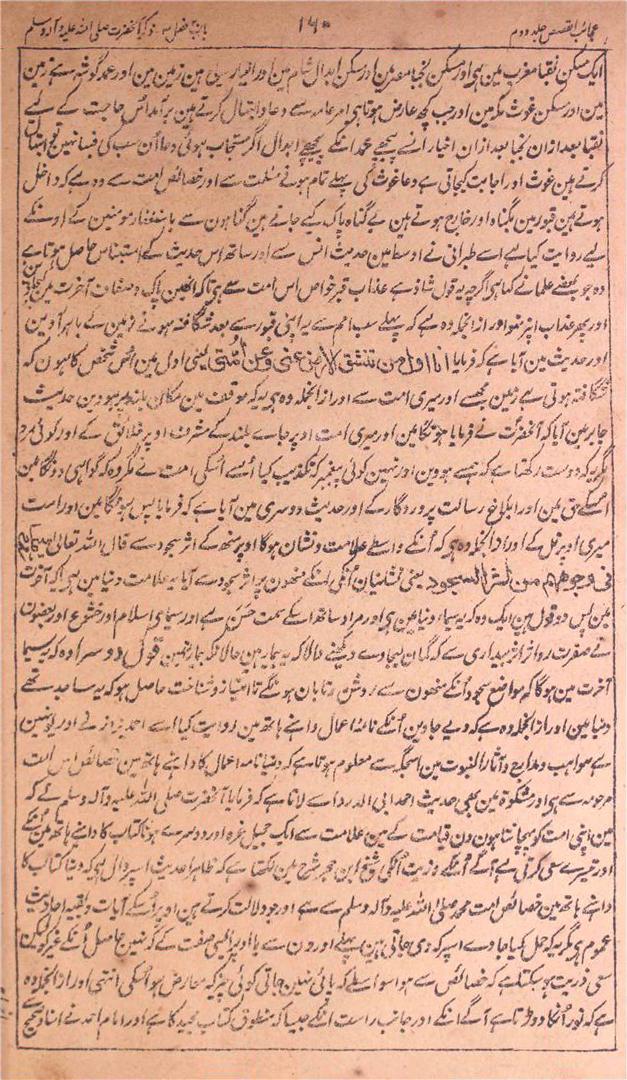 عجائب القصص جلد دوم ۱۶۰ باب ۲ فصل ۳ ذکر آنحضرت صلی اللہ علیہ وآلہ وسلم
ایک مسکن نقبا مغرب مین ہی اور مسکن نجبا مصر مین اور مسکن ابدال شام مین اور اخیار سیاح ہین زمین مین اور عمد گوشہ ہے زمین
مین اور مسکن غوث مکہ مین اور جب کچھ عارض ہوتا ہی امر عامہ سے دعا و ابتہال کرتے ہین برآمدائن حاجت کے لیے
نقبا بعد ازان نجبا بعد ازان اخیار انکے پیچھے عمد انکے پیچھے ابدال اگر مستجاب ہوئی دعا اُن سب کی فبہا نہین تو ابتہال
کرتے ہین غوث اور اجابت کیجاتی ہے دعا غوث کی پہلے تمام ہونے مسئلت سے اور خصائص امت سے وہ ہے کہ داخل
ہوتے ہین قبور مین بگناہ اور خارج ہوتے ہین بے گناہ پاک کیے جاتے ہین گناہون سے باستغفار مومنین کے اونکے
لیے روایت کیا ہے اسے طبرانی نے اوسط مین حدیث انس سے اور ساتھ اس حدیث کے استیناس حاصل ہوتا ہے
وہ جو بعضے علما نے کہا ہی اگرچہ یہ قول شاذ ہے عذاب قبر خواص اس امت سے ہی تاکہ انھین پاک و صاف آخرت مین
اور پھر عذاب اپر نہو اور از انجملہ وہ ہے کہ پہلے سب امم سے یہ اپنی قبور سے بعد شگافتہ ہونے زمین کے باہر آوین
اور حدیث مین آیا ہے کہ فرمایا انا اول من تنشق الارض عنی وعن امتی یعنی اول مین اُس شخص کا ہون کہ
شگافتہ ہوتی ہے زمین مجھسے اور میری امت سے اور از انجملہ وہ ہی یہ کہ موقف مین مکان بلند پر ہو دین حدیث
جابر مین آیا کہ آنحضرت نے فرمایا ہونگا مین اور میری امت اوپر جاے بلند کے مشرف اوپر خلائق کے اور کوئی مرد
مگر یہ کہ دوست رکھتا ہے کہ ہمسے ہووین اور نہین کوئی پیغمبر کہ تکذیب کیا اُسے اُسکی امت نے مگر وہ کہ گواہی دونگا مین
اُسکے حق مین اور ابلاغ رسالت پروردگار کے اور حدیث دوسری مین آیا ہے کہ فرمایا پس ہونگا مین اور امت
میری اوپر تل کے اور از انجملہ وہ ہی کہ اُنکے واسطے علامت و نشان ہوگا اوپر منھ کے اثر سجود سے قال اللہ تعالی سیماہم
فی وجوھھم من اثر السجود یعنی نشانیان اُنکی اُنکے منھون پر اثر سجود سے آیا یہ علامت دنیا مین ہی یا کہ آخرت
مین پس دو قول ہین ایک وہ کہ یہ سیما دنیا مین ہی اور مراد ساتھ اسکے سمت حسن ہے اور سیمای اسلام اور خشوع اور بعضون
نے صفرت رو اثر شب بیداری سے کہ گمان لیجاوے دیکھنے والا کہ یہ بیمار ہین حالانکہ بیمار نہین قول دوسرا وہ کہ یہ سیما
آخرت مین ہوگا کہ مواضع سجود اُنکے منھون سے روشن و تابان ہونگے تا امتیاز و شناخت حاصل ہو کہ یہ ساجد تھے
دنیا مین اور از انجملہ وہ ہے کہ دیے جاوین اُنکے نامۂ اعمال داہنے ہاتھ مین روایت کیا اسے احمد بزار نے اور یونہین
ہے مواہب و مدارج و آثار النبوت مین اسجگہ سے معلوم ہوتا ہے کہ دینا نامہ اعمال کا داہنے ہاتھ مین خصائص اس امت
مرحومہ سے ہی اور مشکوۃ مین بھی حدیث احمد ابی الدرداء سے لاتا ہے کہ فرمایا آنحضرت صلی اللہ علیہ وآلہ وسلم نے کہ
مین اپنی امت کو پہچانتا ہون دن قیامت کے مین علامت سے ایک تحجیل غرہ اور دوسرے ہونا کتاب کا داہنے ہاتھ مین اُنکے
اور تیسرے سعی کرتی ہے آگے اُنکے ذریت اُنکی شیخ ابن حجر شرح مین لکھتا ہے کہ ظاہر احادیث اسپر دال ہی کہ دینا کتاب کا
داہنے ہاتھ مین خصائص امت محمد صلی اللہ علیہ وآلہ وسلم سے ہے اور جو دلالت کرتے ہین اوپر اُسکے آیات و بقیہ احادیث
عموم ہی مگر یہ کہ حمل کیا جاوے اسپر کہ دی جاتی ہین پہلے اورون سے یا اوپر ایسی صفت کے کہ نہین حاصل اُنکے غیر کو لیکن
سعی ذریت ہو سکتا ہے کہ خصائص سے ہو اسواسطے کہ پائی نہین جاتی کوئی چیز کہ معارض ہو اُسکی انتہی اور از انجملہ وہ
ہے کہ نور اُنکا دوڑتا ہے آگے انکے اور جانب راست انکے جیسا کہ منطوق کتاب مجید کا ہے اور امام احمد نے اسناد صحیح